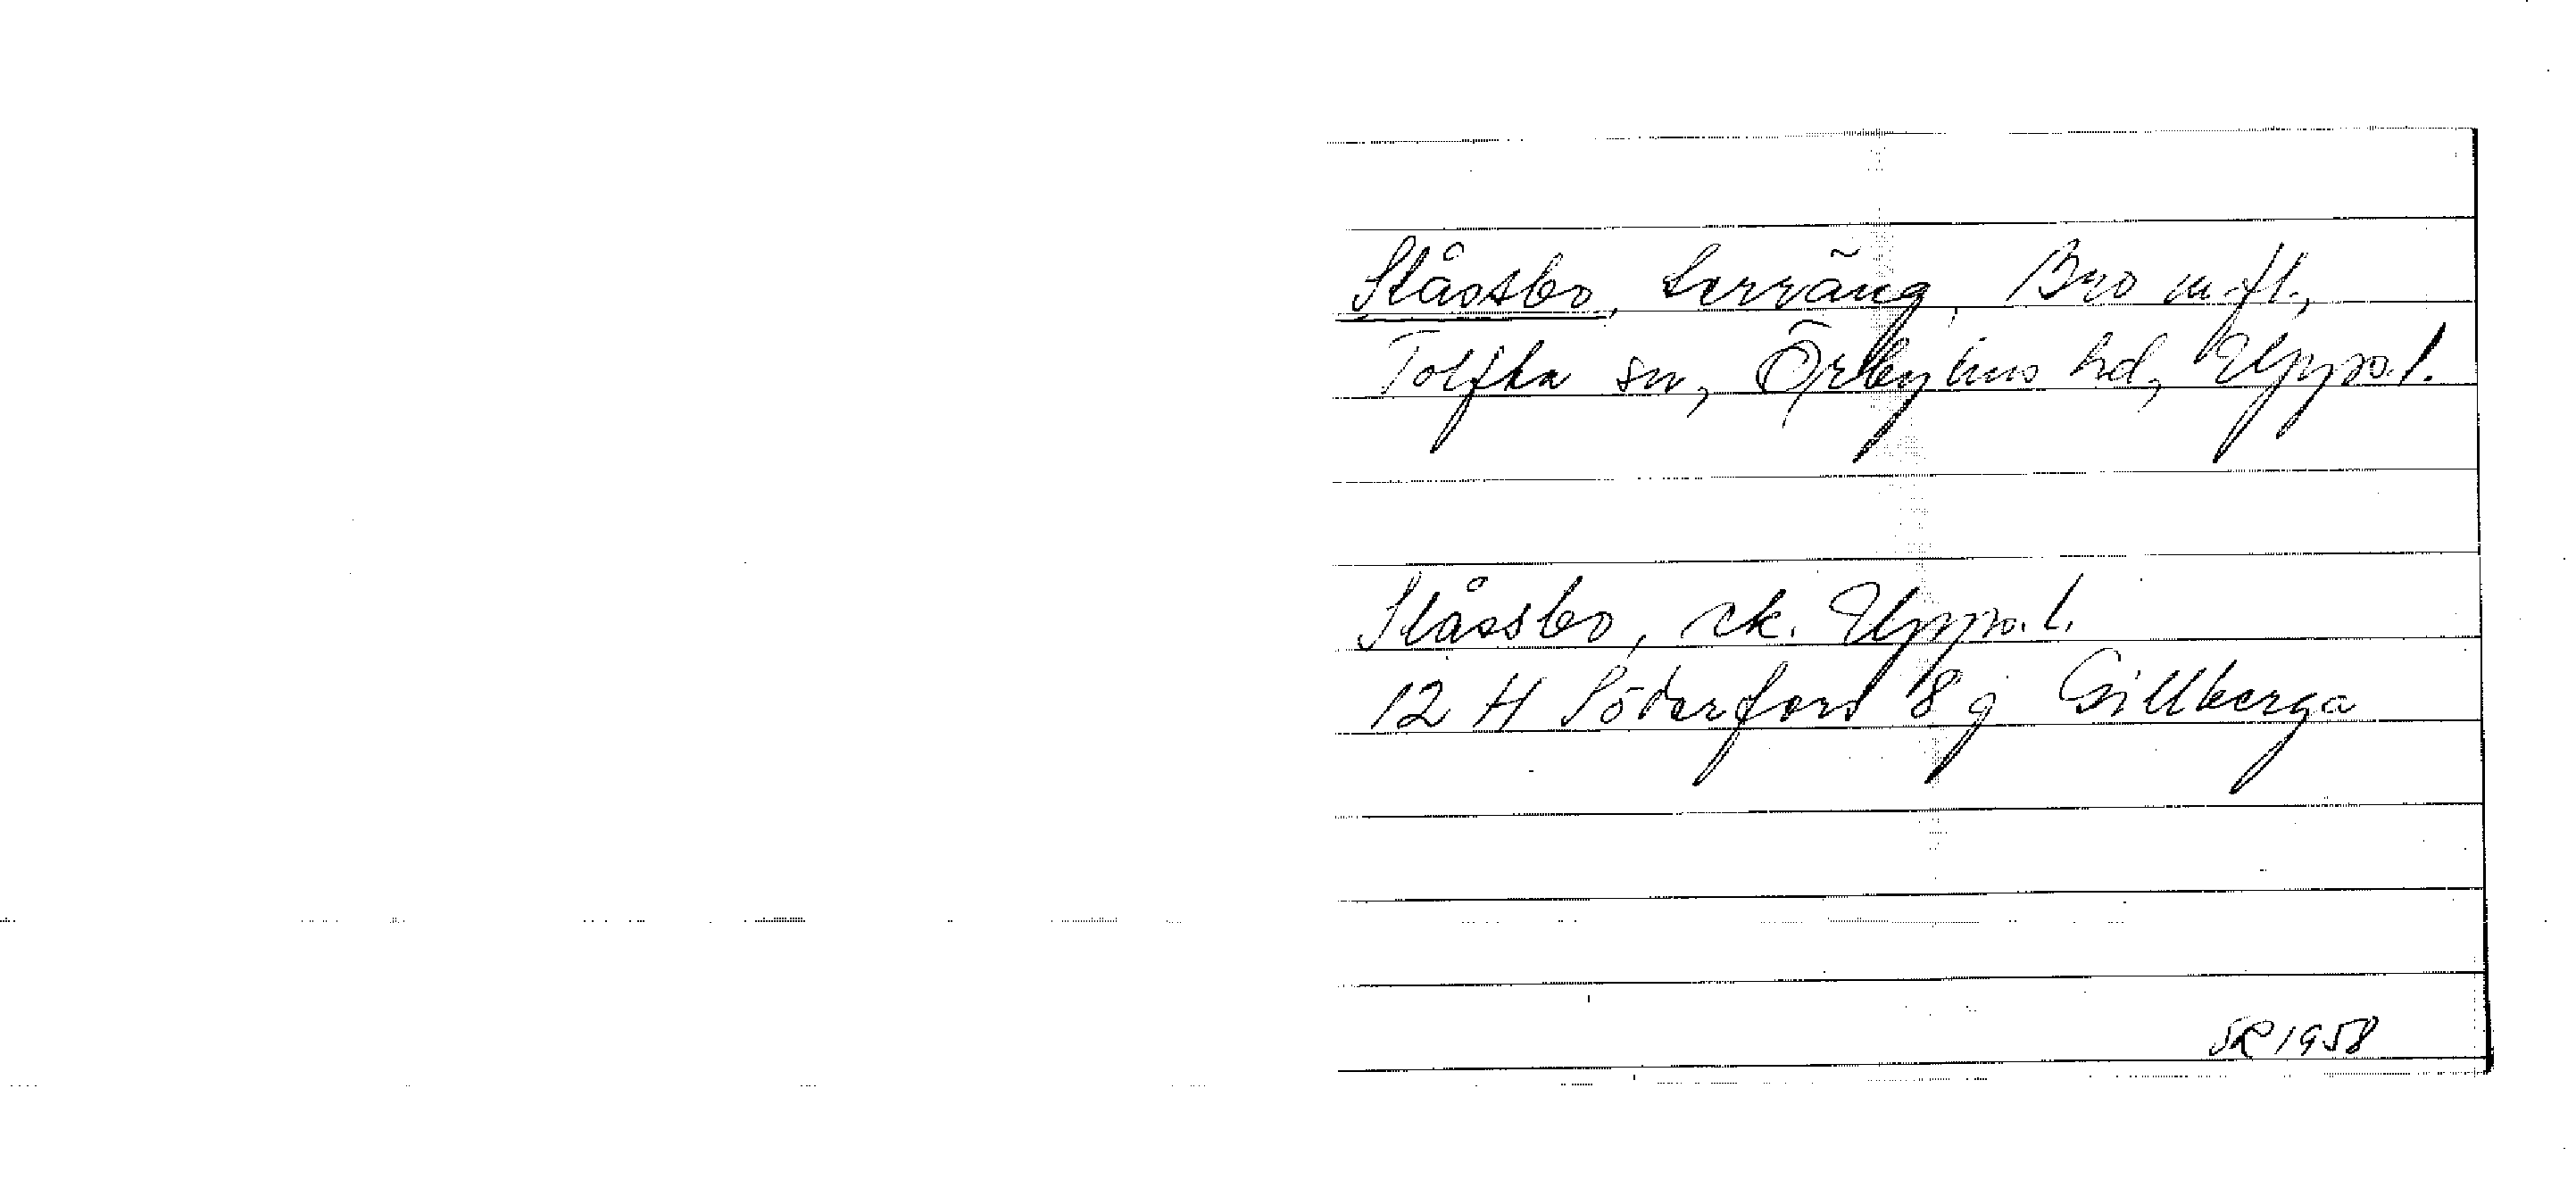 Slåssbo, Lerräng, Bro m.fl.,
Tolfta sn, Örbyhus hd, Upps.l.
Slåssbo, rk. Upps.l.
12 H Söderfors 8 g Gillberga
SR 1958